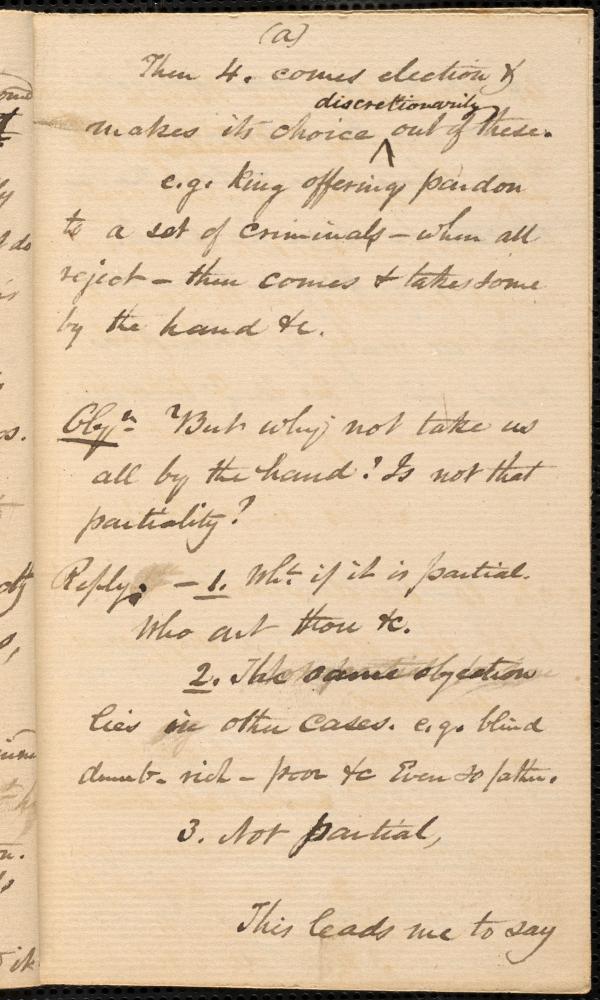 (a)
Then 4. comes election &
discretionarily
makes its choice ^ out of these.
e.g. King offering pardon
to a set of criminals – when all
reject – then comes & takes some
by the hand &c.
Objn. But why not take us
all by the hand? Is not that
partiality?
Reply: – 1. Wht if it is partial.
Who art thou &c.
2. The same objection
lies in other cases. e.g. blind
dumb – rich – poor &c Even so father.
3. Not partial,
This leads me to say